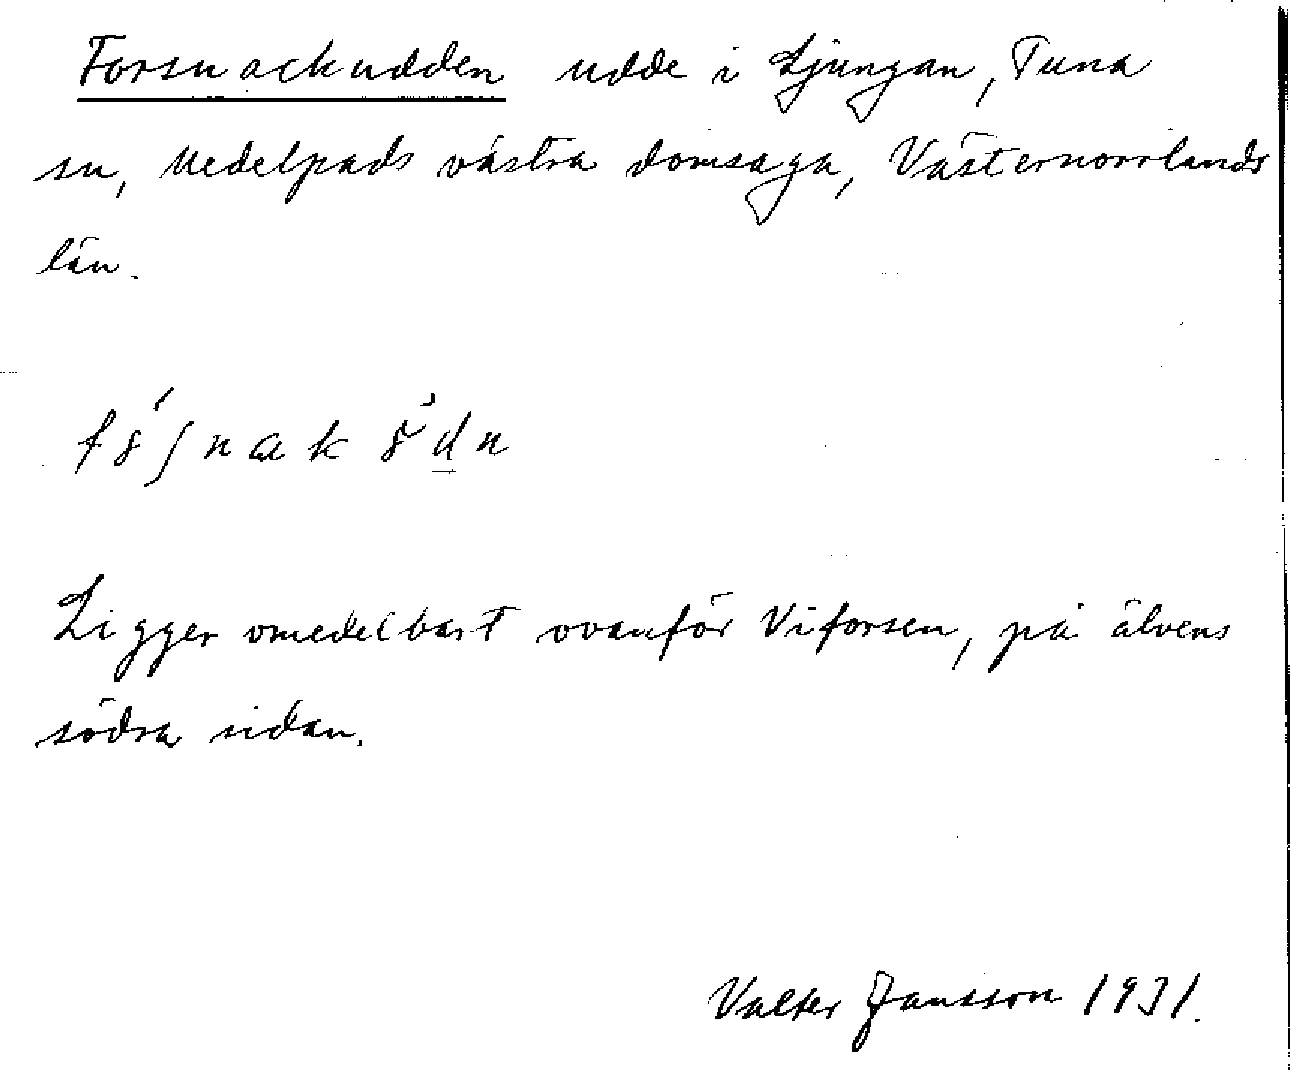 Forsnackudden udde i Ljungan, Tuna
sn, Medelpads västra domsaga, Västernorrlands
län.
Ligger omedelbart ovanför Viforsen, på älvens
södra sidan.
Valter Jansson 1931.